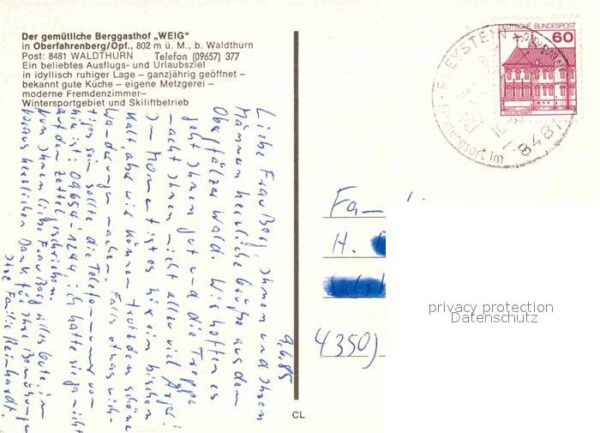 Der gemütliche Berggasthof „WEIG"
in Oberfahrenberg/Opf., 802 m ü. M., b. Waldthurn
Post: 8481 WALDTHURN Telefon (09657) 377
Ein beliebtes Ausflugs- und Urlaubsziel
in idyllisch ruhiger Lage – ganzjährig geöffnet –
bekannt gute Küche – eigene Metzgerei –
moderne Fremdenzimmer–
Wintersportgebiet und Skiliftbetrieb
9.6.85
Liebe Frau Borg, Ihnen und Ihren
Männern herzliche Grüße aus dem
Oberpfälzer Wald. Wir hoffen es
geht Ihnen gut und die Treppe
macht Ihnen nicht allzu viel Ärger.
Im Moment ist es hier ein bischen
kalt, aber wir können trotzdem schöne
Wanderungen machen. Falls etwas wich-
tiges sein sollte die Telefonnummer von
hier ist: 09654-1244, ich hatte sie nicht
auf den Zettel geschrieben.
Ihnen liebe Frau Borg alles Gute, im
Voraus herzlichen Dank für Ihre Bemühungen
Ihre Familie Reinhardt.
CL
DEUTSCHE BUNDESPOST
60
8481
Fam
H.
4350
privacy protection
Datenschutz